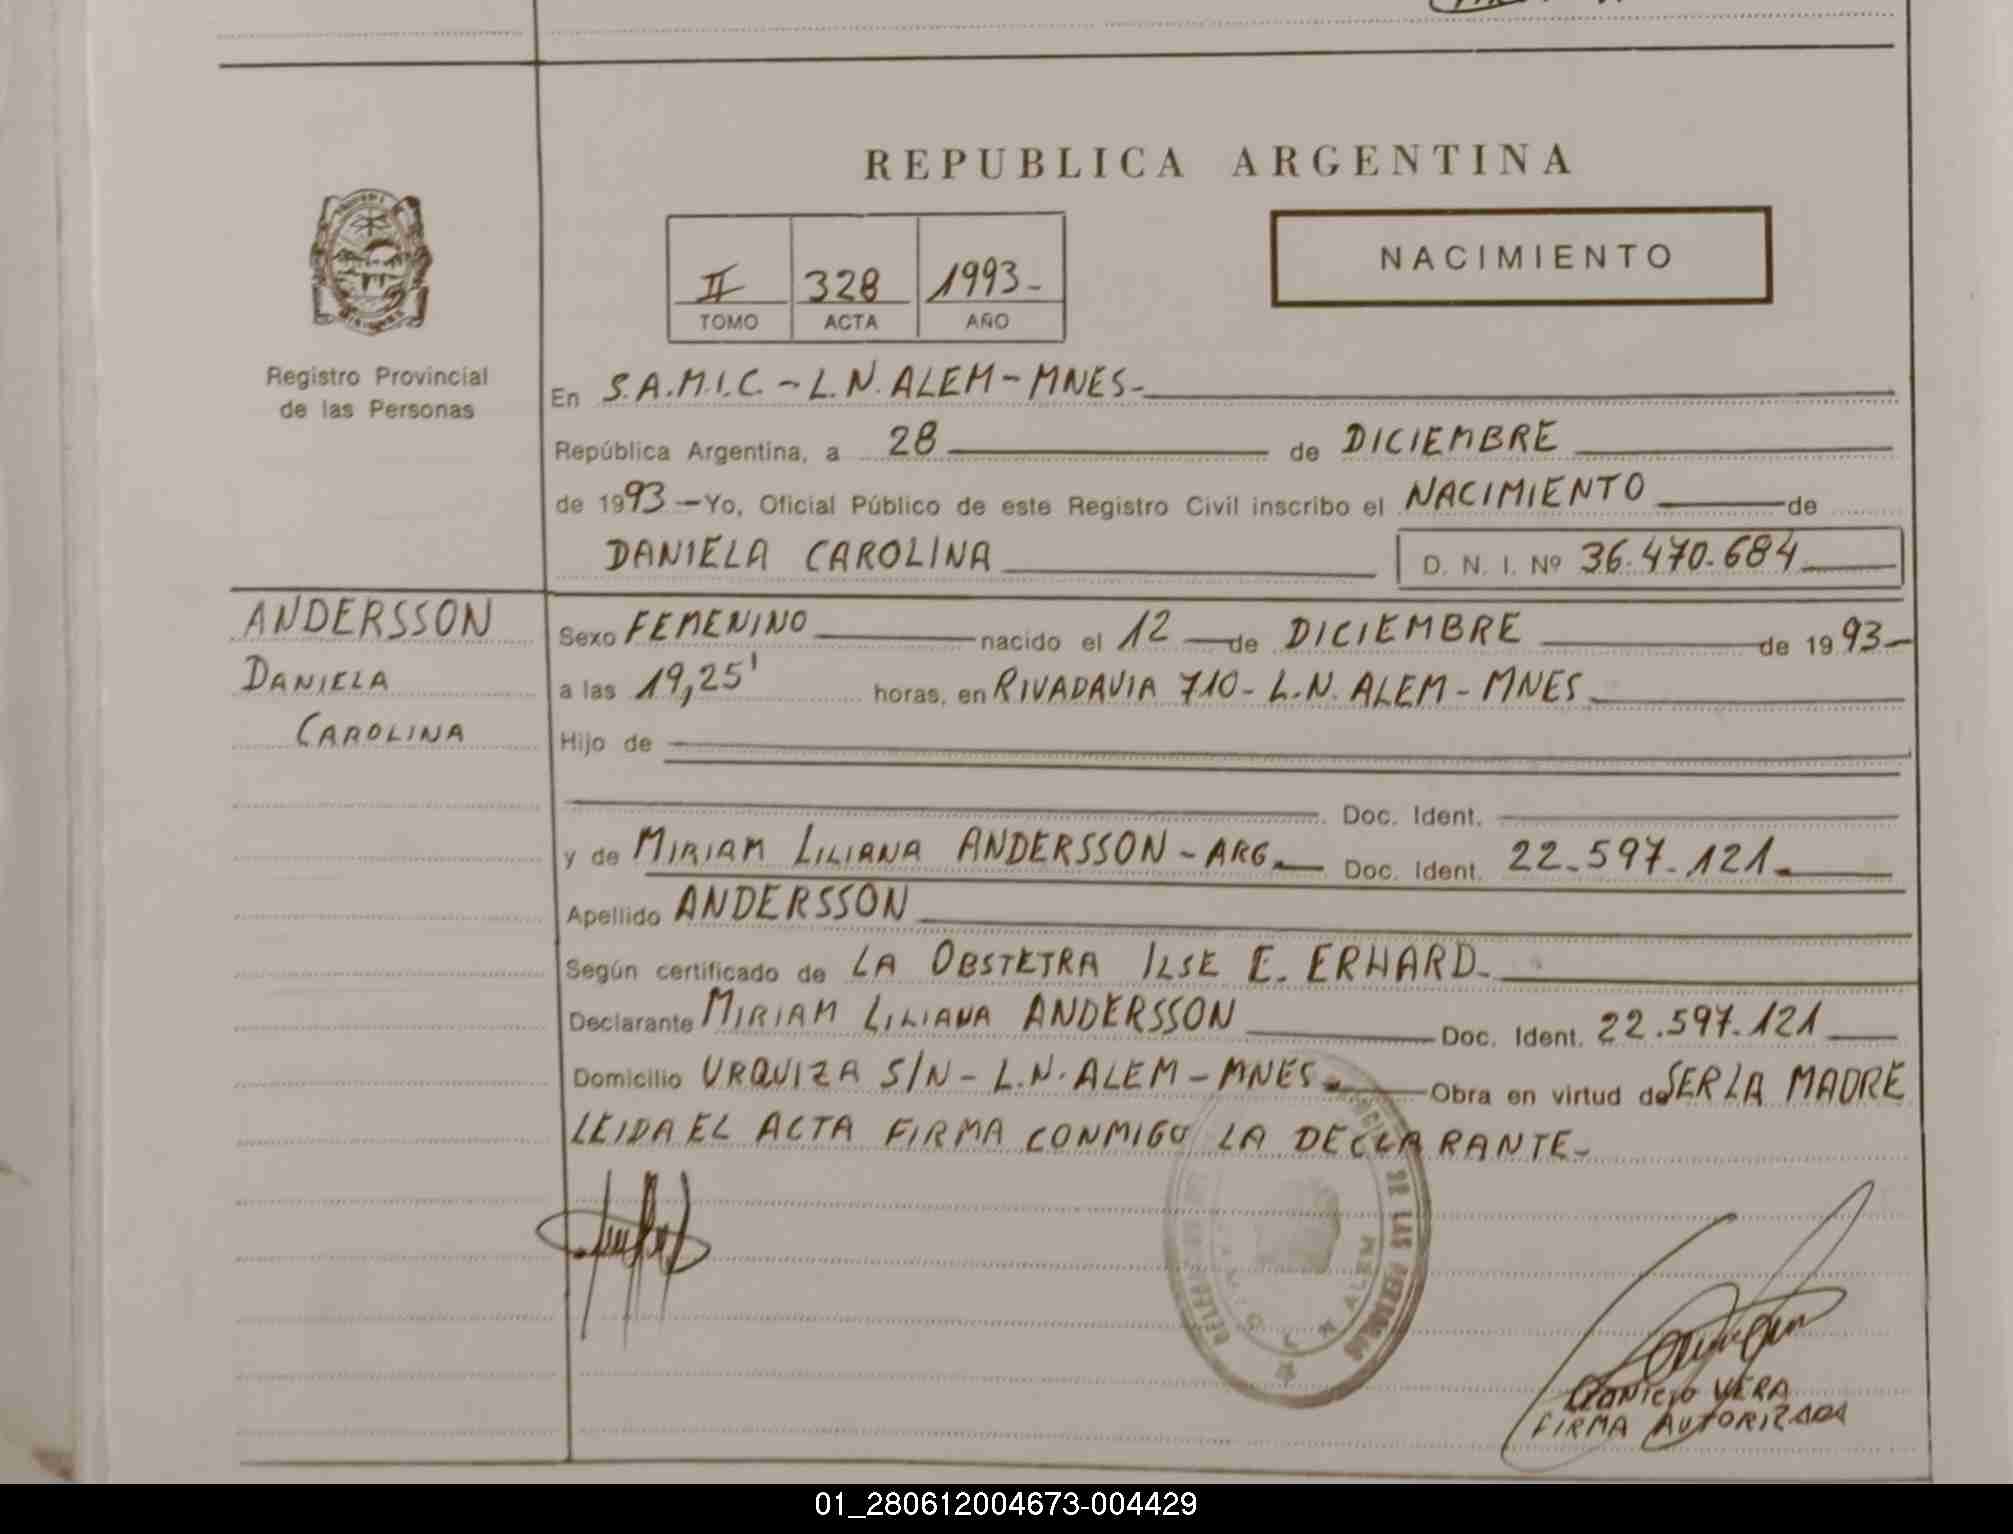 REPUBLICA ARGENTINA
NACIMIENTO
II 328 1993-
TOMO ACTA AÑO
Registro Provincial
de las Personas
En S.A.M.I.C.-L.N.ALEM-MNES-
República Argentina, a 28 de DICIEMBRE
de 1993-Yo, Oficial Público de este Registro Civil inscribo el NACIMIENTO de
DANIELA CAROLINA D. N. I. Nº 36.470.684
ANDERSSON
DANIELA
CAROLINA
Sexo FEMENINO nacido el 12 de DICIEMBRE de 1993-
a las 19,25' horas, en RIVADAVIA 710-L.N. ALEM-MNES
Hijo de
Doc. Ident.
y de MIRIAM LILIANA ANDERSSON-ARG. Doc. Ident. 22.597.121.
Apellido ANDERSSON
Según certificado de LA OBSTETRA ILSE E. ERHARD.
Declarante MIRIAM LILIANA ANDERSSON Doc. Ident. 22.597.121
Domicilio URQUIZA S/N-L.N.ALEM-MNES. Obra en virtud de SER LA MADRE
LEIDA EL ACTA FIRMA CONMIGO LA DECLARANTE-
DE LAS PERSONAS
ALEM
VERA
FIRMA AUTORIZADA
01_280612004673-004429